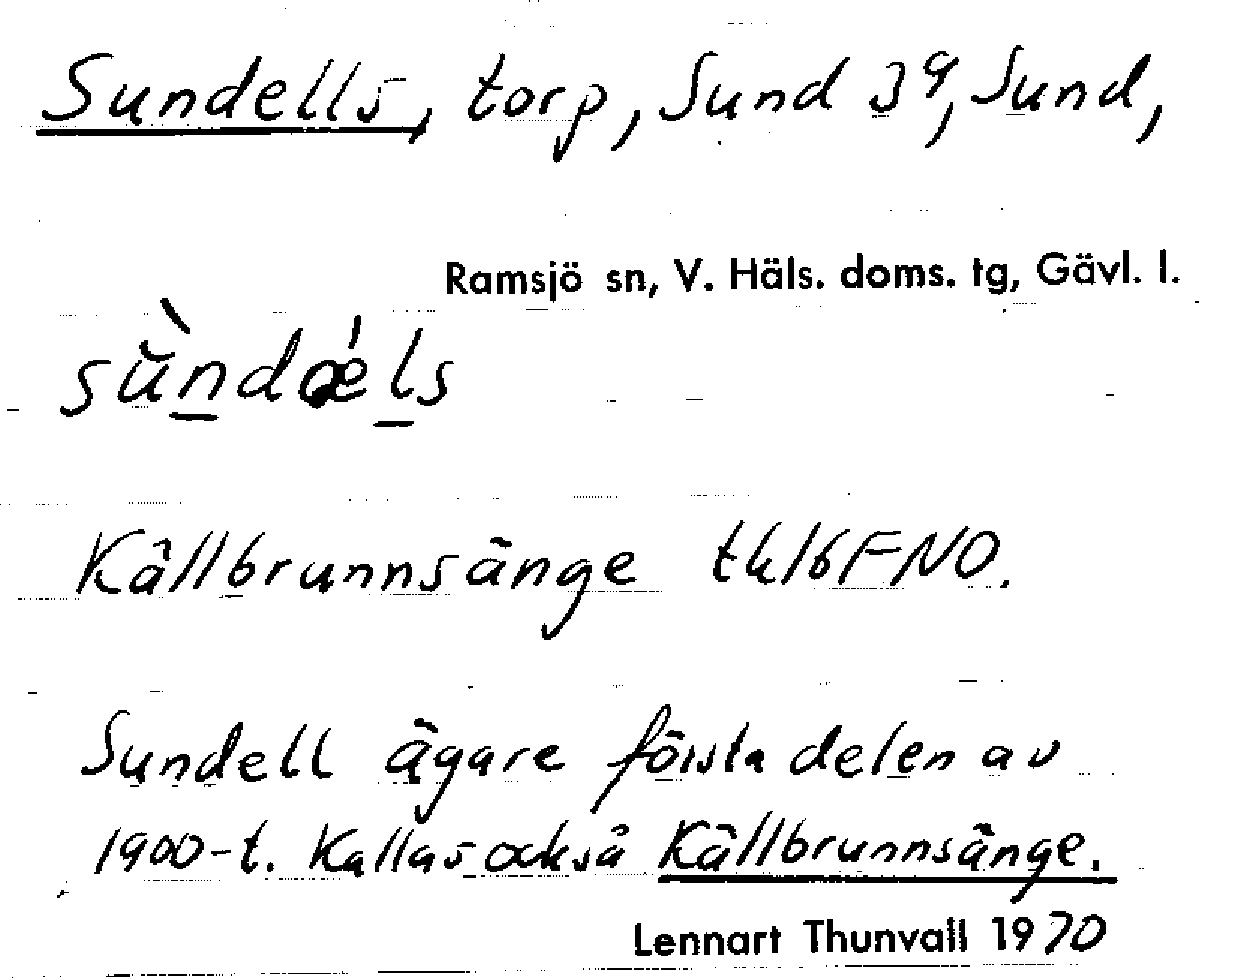 Sundells, torp, Sund 3⁹, Sund,
Ramsjö sn, V. Häls. doms. tg, Gävl. l.
sùndǽls
Källbrunnsänge tk 16F NO.
Sundell ägare första delen av
1900-t. Kallas också Källbrunnsänge.
Lennart Thunvall 1970